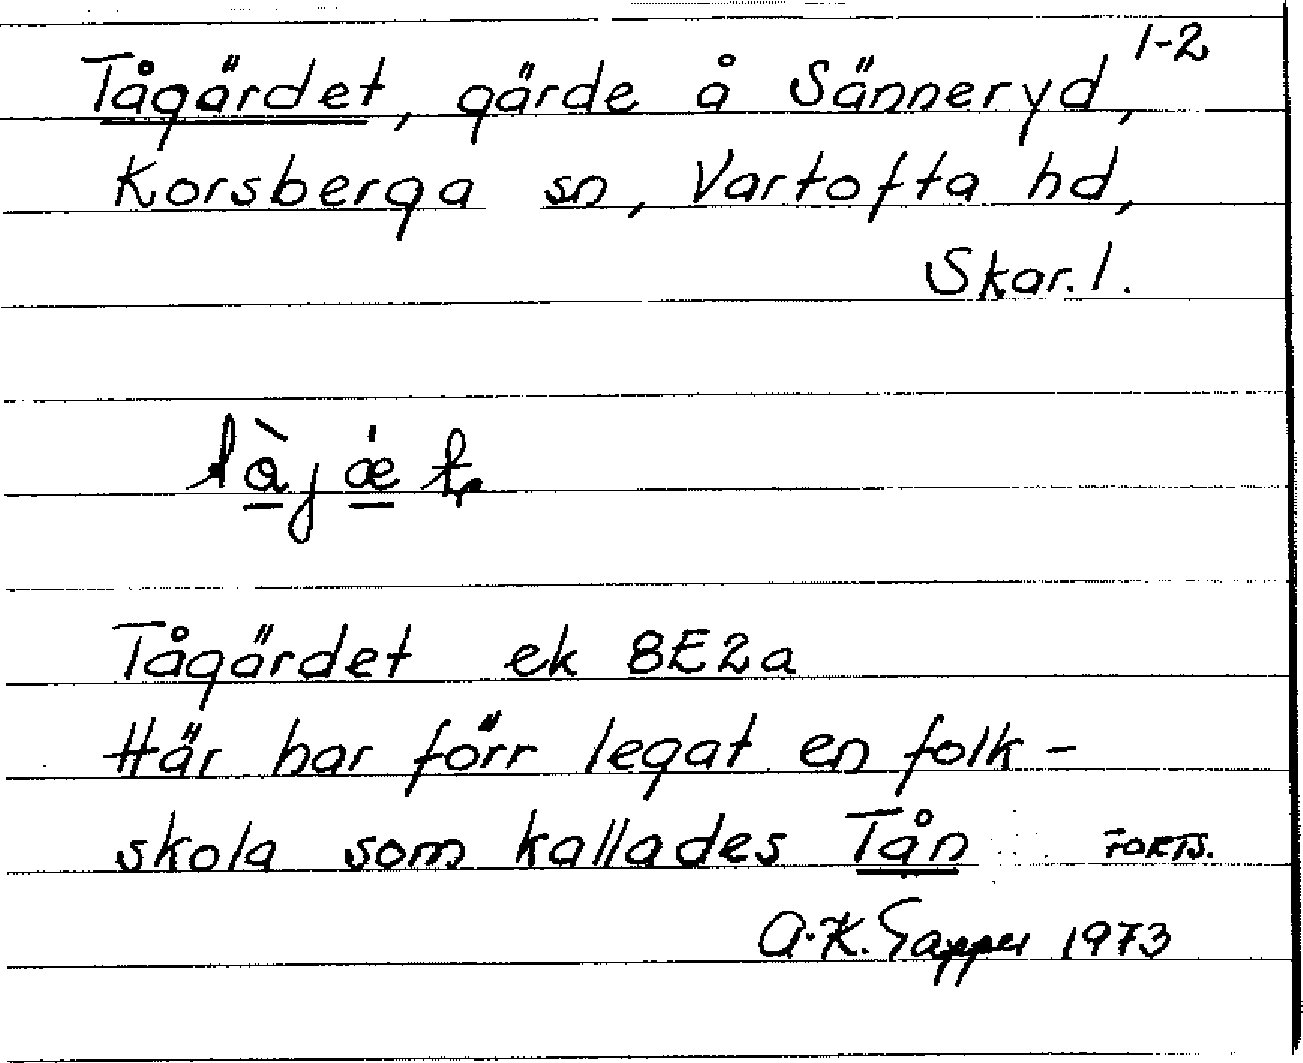 1-2
Tågärdet, gärde å Sänneryd,
Korsberga sn, Vartofta hd,
Skar. l.
Tågärdet ek 8E2a
Här har förr legat en folk-
skola som kallades Tån FORTS.
A.K. 1973